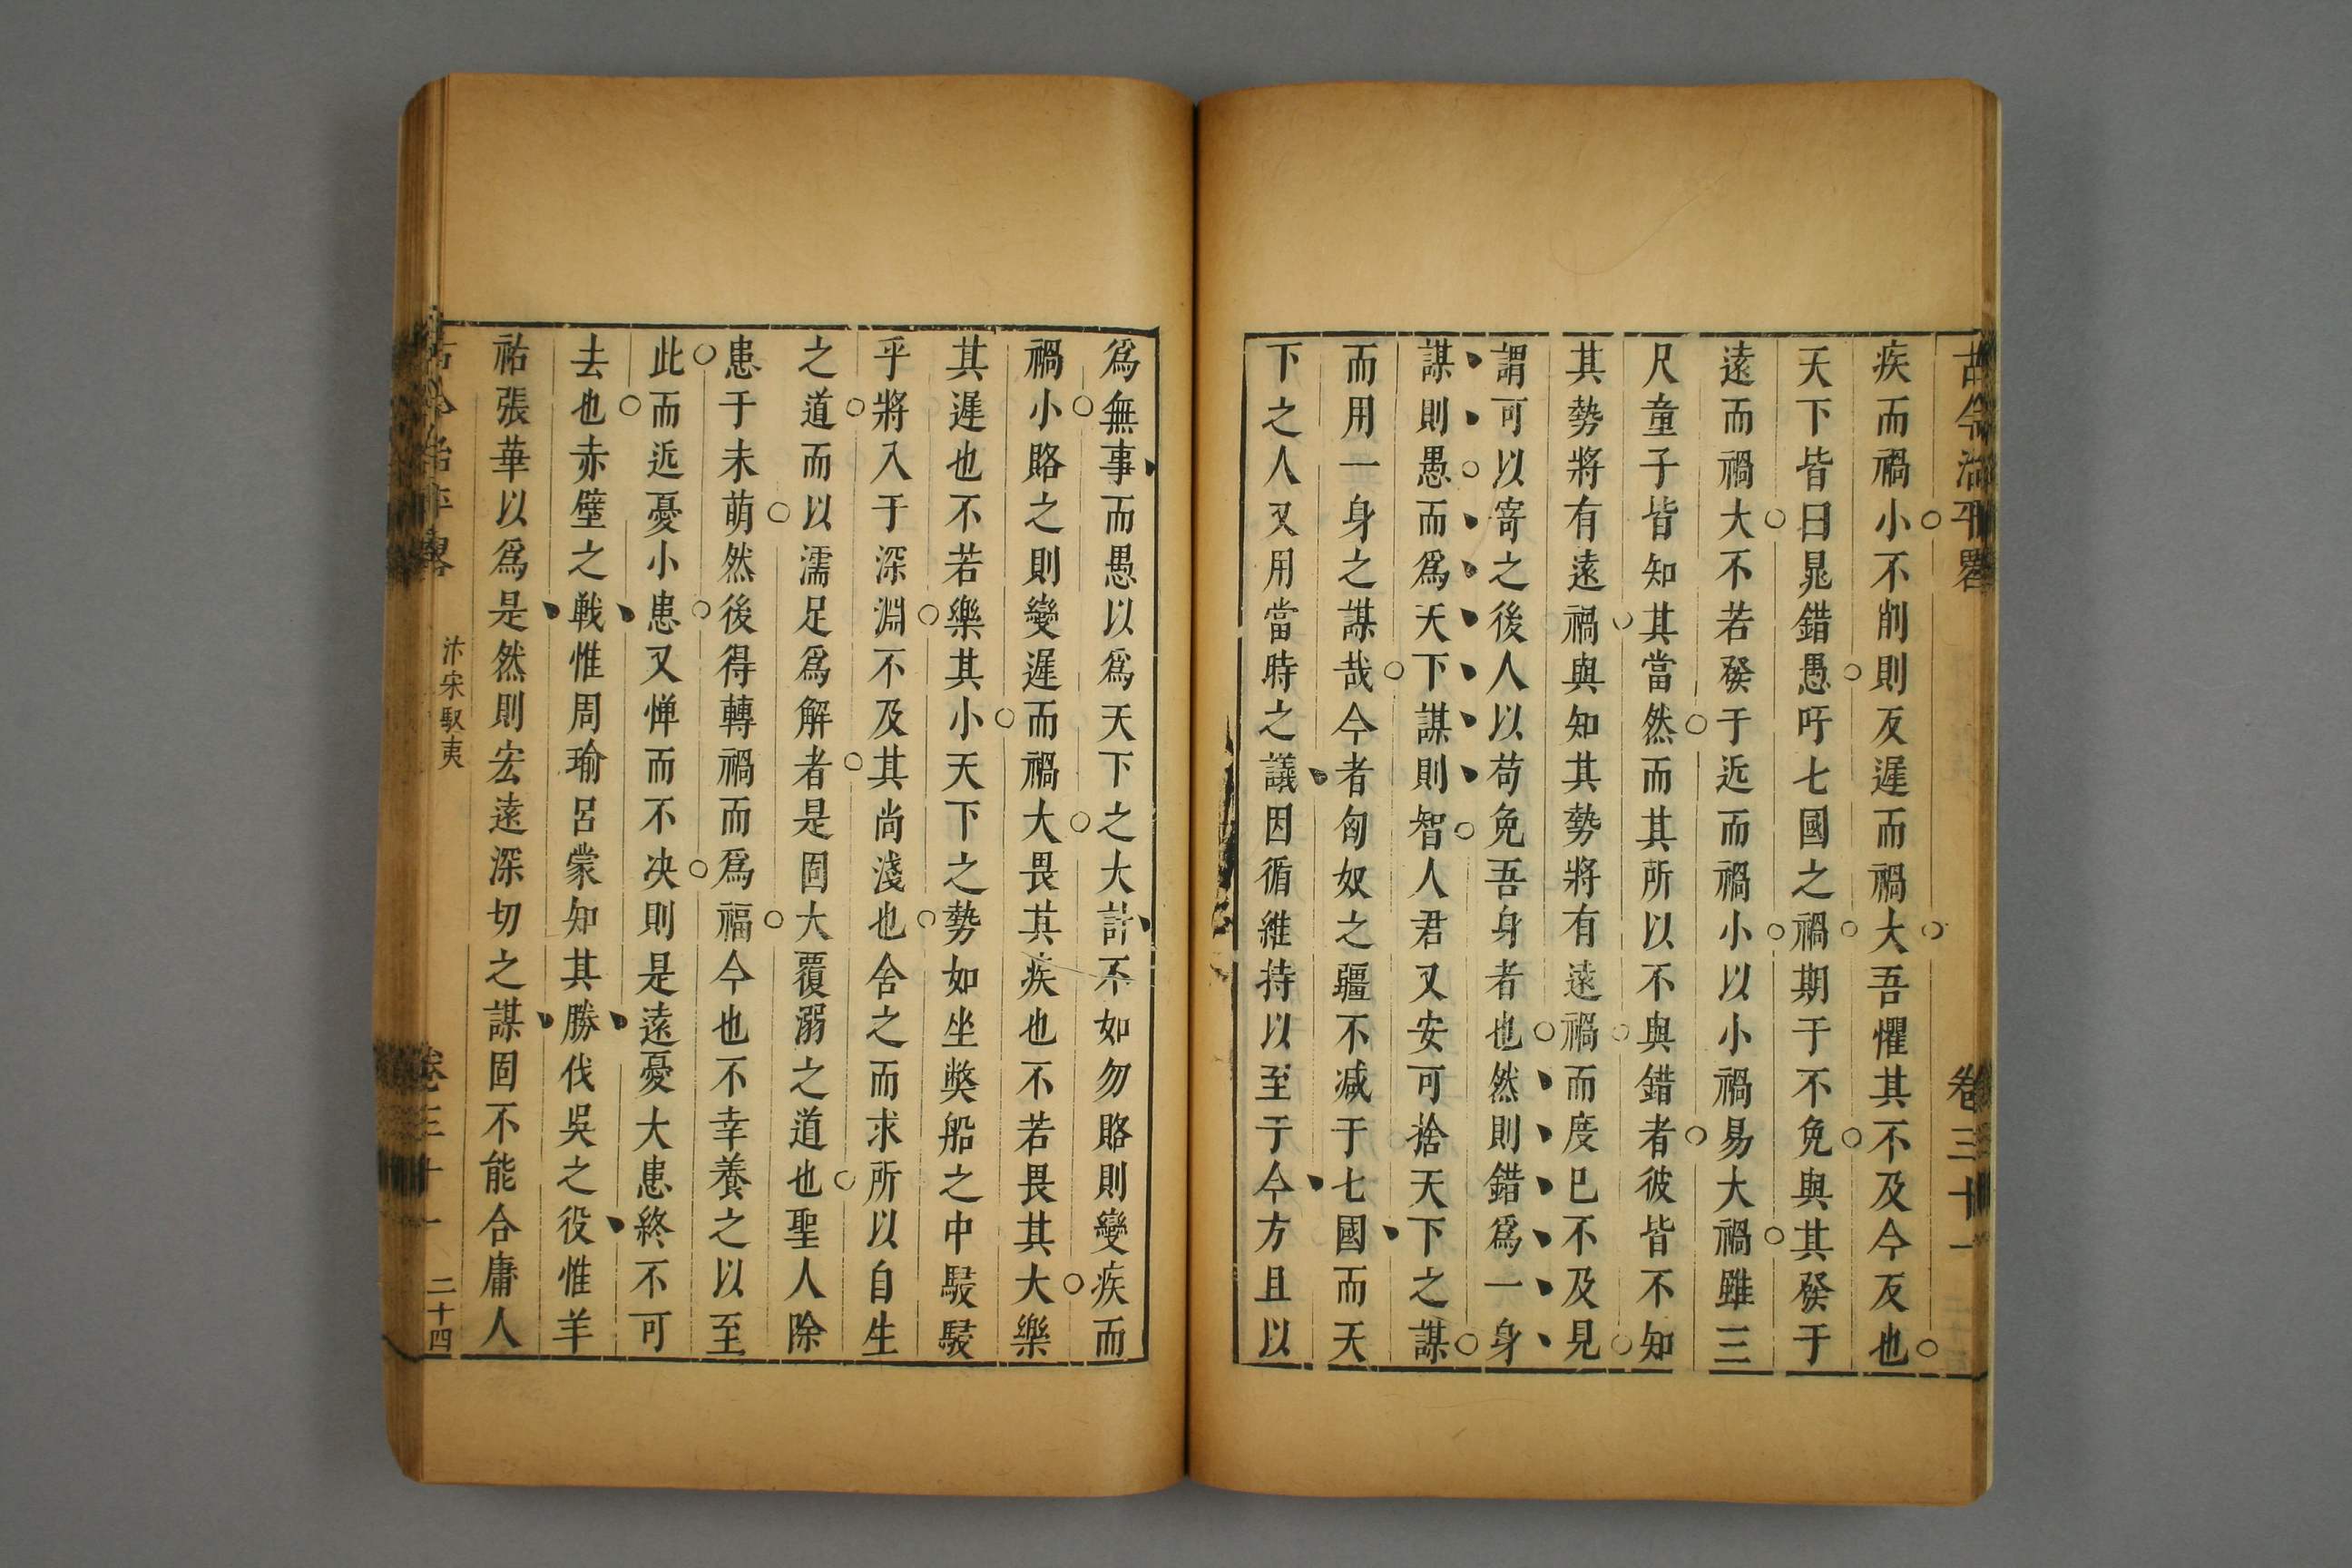 古今治平畧 卷三十一
疾而禍小不削則反遲而禍大吾懼其不及今反也
天下皆曰晁錯愚吁七國之禍期于不免與其發于
遠而禍大不若發于近而禍小以小禍易大禍雖三
尺童子皆知其當然而其所以不與錯者彼皆不知
其勢將有遠禍與知其勢將有遠禍而度已不及見
謂可以寄之後人以苟免吾身者也然則錯爲一身
謀則愚而爲天下謀則智人君又安可捨天下之謀
而用一身之謀哉今者匈奴之疆不减于七國而天
下之人又用當時之議因循維持以至于今方且以
爲無事而愚以爲天下之大計不如勿賂則變疾而
禍小賂之則變遲而禍大畏其疾也不若畏其大樂
其遲也不若樂其小天下之勢如坐獘船之中駸駸
乎將入于深淵不及其尚淺也舍之而求所以自生
之道而以濡足爲解者是固大覆溺之道也聖人除
患于未萌然後得轉禍而爲福今也不幸養之以至
此而近憂小患又憚而不决則是遠憂大患終不可
去也赤壁之戰惟周瑜呂蒙知其勝伐吳之役惟羊
祐張華以爲是然則宏遠深切之謀固不能合庸人
古今治平畧 汴宋馭夷 卷三十一 二十四